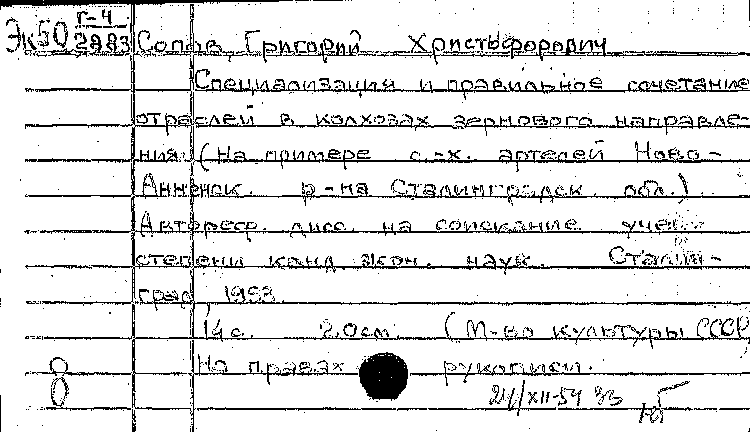 Эк50 Г-4
2883 Солов, Григорий Христофорович
Специализация и правильное сочетание
отраслей в колхозах зернового направле-
ния. (На примере с.-х. артелей Ново-
Анненск. р-на Сталинградск. обл.)
Автореф. дисс. на соискание учен.
степени канд. экон. наук. Сталин-
град, 1953.
14 с. 20см. (М-во культуры СССР)
На правах рукописи.
21/XII-54